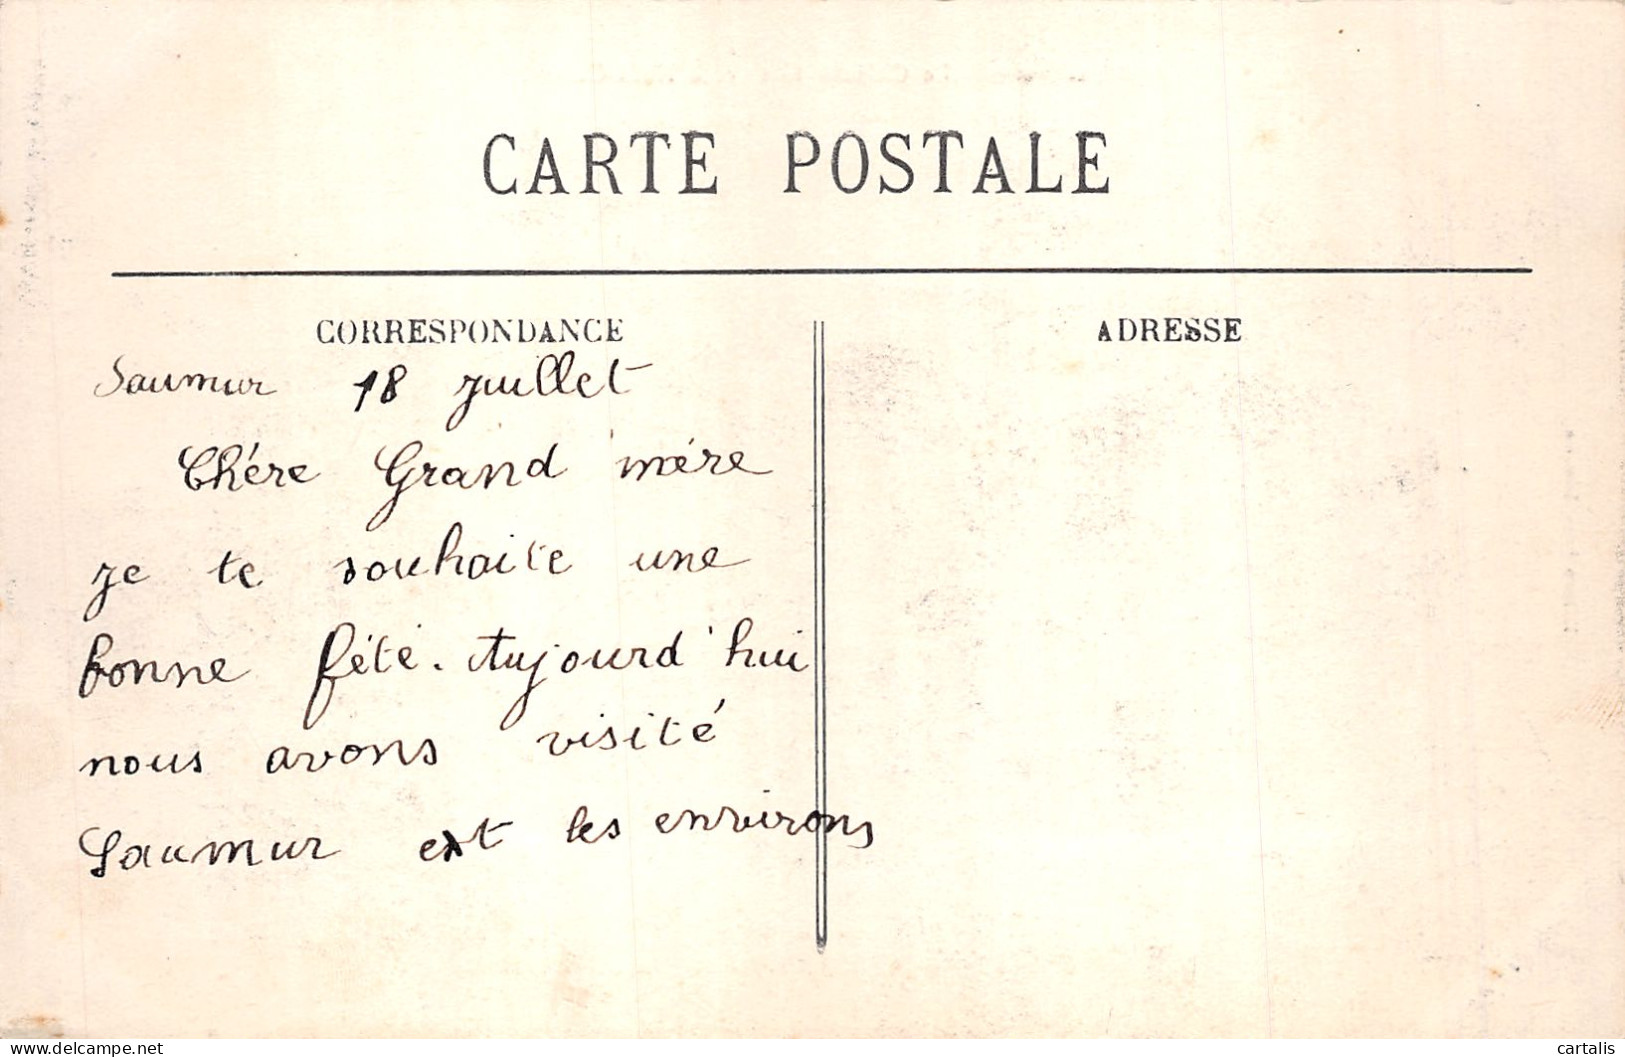 CARTE POSTALE
CORRESPONDANCE
ADRESSE
Saumur 18 juillet
Chére Grand mére
je te souhaite une
bonne féte. Aujourd'hui
nous avons visité
Saumur et les environs
delcampe.net
cartalis